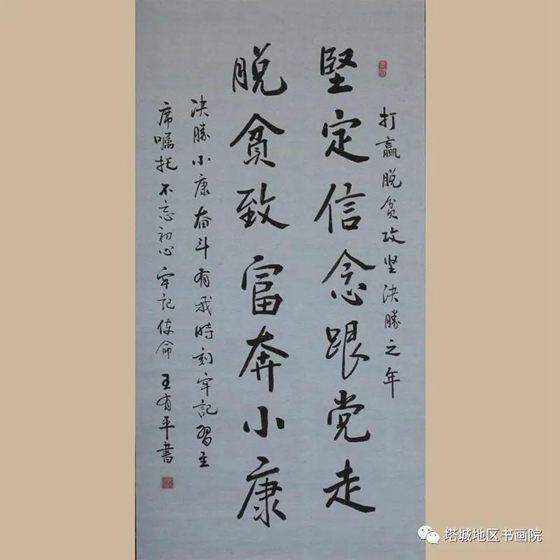 打贏脱貧攻坚決勝之年
堅定信念跟党走
脱貧致富奔小康
决勝小康奋斗有我時刻牢記習主
席嘱托不忘初心牢记使命 王有平書
塔城地区书画院